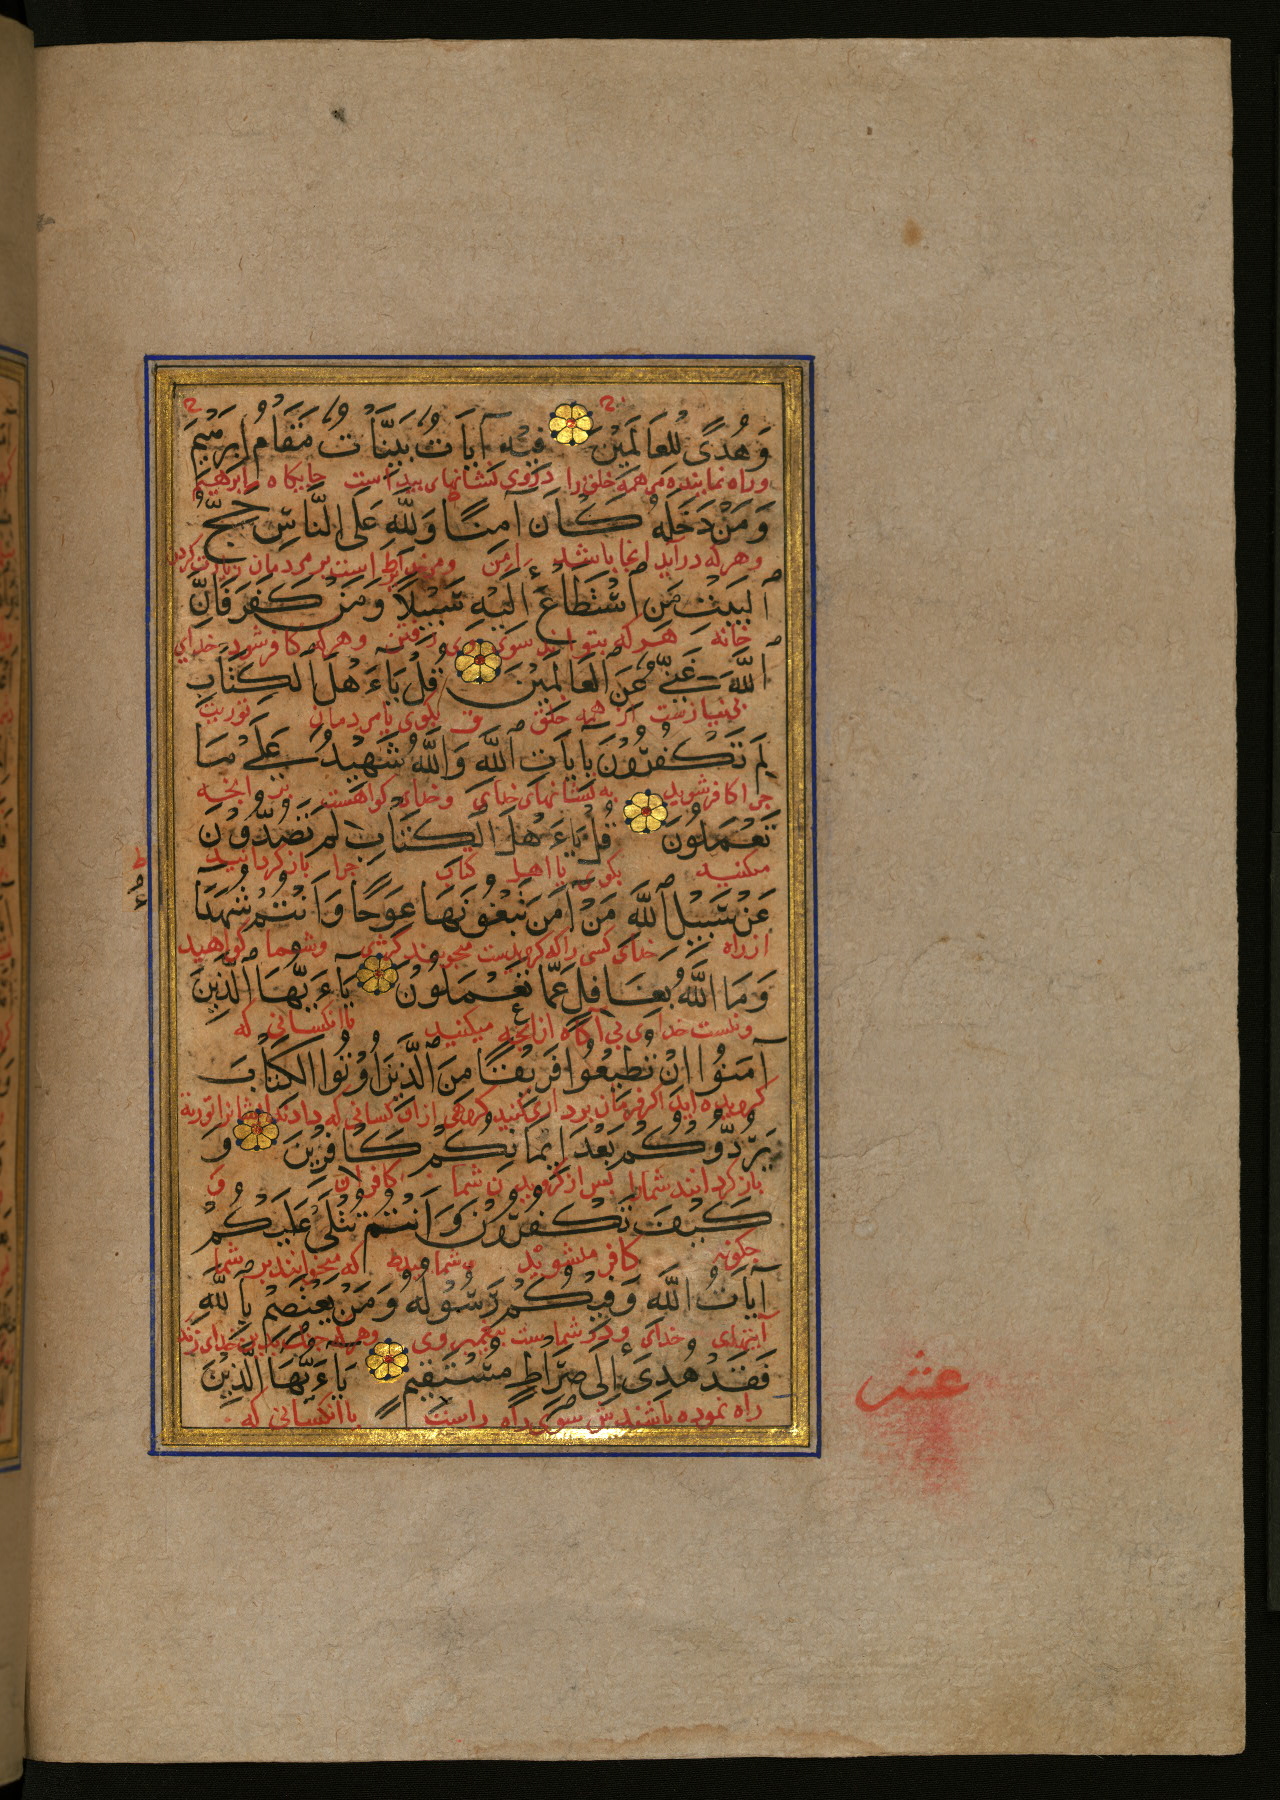 وَهُدًى لِلْعَالَمِيْنَ فِيْهِ آيَاتٌ بَيِّنَاتٌ مَقَامُ اِبْرٰهِيْمَ
وراه نماینده مر همه خلق را دروی نشانهای پیداست جایگاه ابرهیم
وَمَنْ دَخَلَهُ كَانَ آمِنًا وَلِلَّهِ عَلَى النَّاسِ حِجُّ
وهرکه درآید انجا باشد امن ومرخدایراست بر مردمان زیارت کردن
ٱلْبَيْتِ مَنِ ٱسْتَطَاعَ اِلَيْهِ سَبِيْلًا وَمَنْ كَفَرَ فَاِنَّ
خانه هرکه بتواند سوی وی رفتن وهرکه کافر شود خدای
ٱللَّهَ غَنِيٌّ عَنِ ٱلْعَالَمِيْنَ قُلْ يَاءَهْلَ ٱلْكِتَابِ
بی نیازست از همه خلق بگوی یا مردمان توریت
لِمَ تَكْفُرُوْنَ بِآيَاتِ ٱللَّهِ وَاللَّهُ شَهِيْدٌ عَلَى مَا
چرا کافر شوید به نشانهای خدای وخدای گواهست بر آنچه
تَعْمَلُوْنَ قُلْ يَاءَهْلَ الْكِتَابِ لِمَ تَصُدُّوْنَ
میکنید بگوی یا اهل کتاب چرا بازگردانید
عَنْ سَبِيْلِ ٱللَّهِ مَنْ آمَنَ تَبْغُوْنَهَا عِوَجًا وَاَنْتُمْ شُهَدَا
از راه خدای کسی را که گرویدست میجویند کژی وشما گواهید
وَمَا اللَّهُ بِغَافِلٍ عَمَّا تَعْمَلُوْنَ يَاءَيُّهَا الَّذِيْنَ
ونیست خدای بی آگاه از آنچه میکنید یا آنکسانی که
آمَنُوْا اِنْ تُطِيْعُوْا فَرِيْقًا مِنَ ٱلَّذِيْنَ اُوْتُوا الْكِتَابَ
گرویده اید اگر فرمان برداری کنید گروهی از ان کسانی که دادند ایشانرا توریة
يَرُدُّوْكُمْ بَعْدَ اِيمَانِكُمْ كَافِرِيْنَ وَ
بازگردانند شمارا پس از گرویدن شما کافران و
كَيْفَ تَكْفُرُوْنَ وَاَنْتُمْ تُتْلَى عَلَيْكُمْ
چگونه کافر میشوید وشما که میخوانند بر شما
آيَاتُ اللَّهِ وَفِيْكُمْ رَسُوْلُهُ وَمَنْ يَعْتَصِمْ بِٱللَّهِ
آیتهای خدای ودر شماست پیغمبر وی وهرکه چنگ بدین خدای زند
فَقَدْ هُدِيَ اِلَى صِرَاطٍ مُسْتَقِيْمٍ يَاءَيُّهَا الَّذِيْنَ
راه نموده باشندش سوی راه راست یا آنکسانی که
عشر